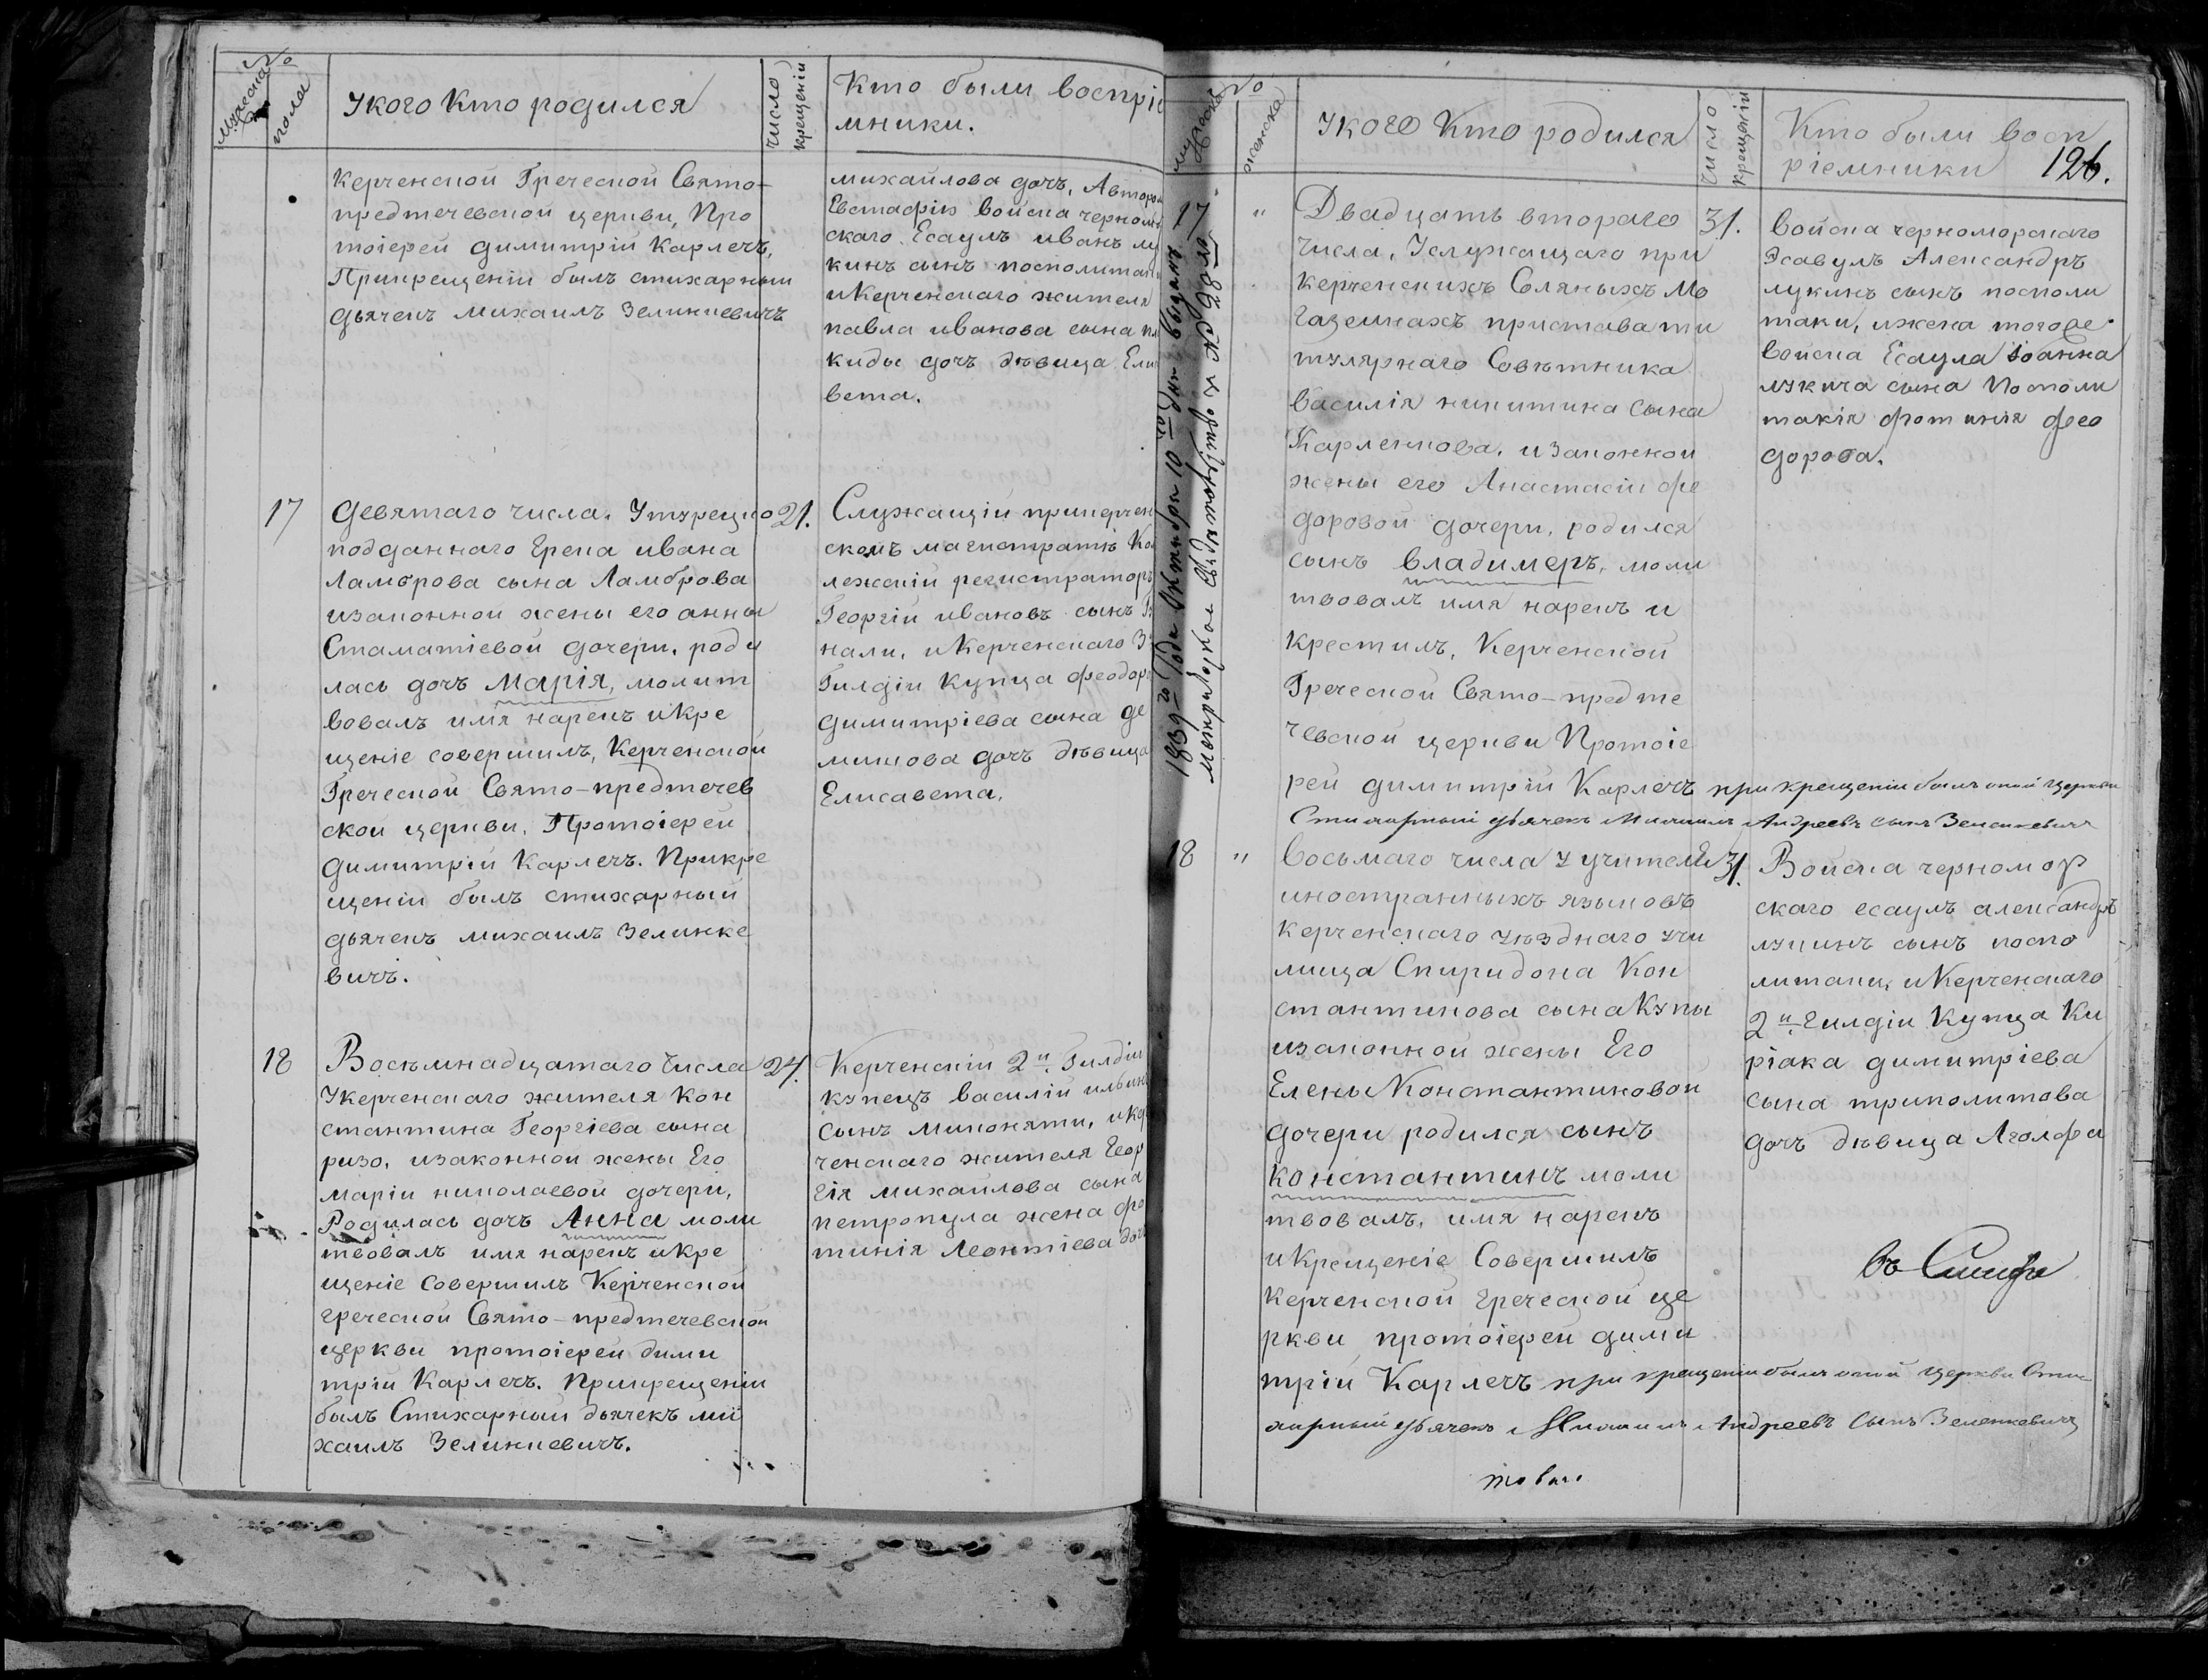 №
мужеска
пола
У кого кто родился
число
крещенія
Кто были воспріе
мники.
Керченской Греческой Свято-
предтечевской церкви, Про
тоіерей Димитрій Карлечъ,
При крещеніи былъ стихарный
дьячекъ Михаилъ Зелинкевичъ
михайлова дочь, Авторой
Евстафія войска черномор
скаго Есаулъ иванъ лу
кинъ сынъ посполитаки
и Керченскаго жителя
павла иванова сына
киды дочь дѣвица Ели
вета.
17
Девятаго числа. У турецко
21.
подданнаго Грека ивана
Ламброва сына Ламброва
и законной жены его анны
Стаматіевой дочери. роди
лась дочь Марія, молит
вовалъ имя нарекъ и Кре
щеніе совершилъ, Керченской
Греческой Свято-предтечев
ской церкви, Протоіерей
Димитрій Карлечъ. При кре
щеніи былъ стихарный
дьячекъ михаилъ Зелинке
вичъ.
Служащій при керчен
скомъ магистратѣ Кол
лежскій регистраторъ
Георгій ивановъ сынъ
нали, и Керченскаго 3й
Гилдіи Купца феодора
Димитріева сына де
мишова дочь дѣвица
Елисавета.
18
Восемнадцатаго Числа
24.
У керченскаго жителя Кон
стантина Георгіева сына
ризо, и законной жены Его
маріи николаевой дочери,
Родилась дочь Анна моли
твовалъ имя нарекъ и Кре
щеніе Совершилъ Керченской
греческой Свято-предтечевской
церкви протоіерей дими
трій Карлечъ. При крещеніи
былъ Стихарный дьячекъ ми
хаилъ Зелинкевичъ.
Керченскій 2й Гилдіи
купецъ василій ильинъ
сынъ Миконяти, и кер
ченскаго жителя Геор
гія михайлова сына
петропула жена фо
тинія Леонтіева дочь
№
мужеска
женска
У кого Кто родился
число
крещеніи
Кто были восп
ріемники
126.
1839го Года Октября 10го дня выданъ
метрическое свидѣтельство
17
"
Двадцать втораго
31.
числа, У служащаго при
керченскихъ Соляныхъ Ма
газейнахъ пристава ти
тулярнаго Совѣтника
Василія никитина сына
Карленкова, и законной
жены его Анастасіи фе
доровой дочери, родился
сынъ владимеръ, моли
твовалъ имя нарекъ и
крестилъ, Керченской
Греческой Свято-предте
чевской церкви Протоіе
рей димитрій Карлечъ при крещеніи былъ оной Церкви
Стихарный дьячекъ Михаилъ Андреевъ сынъ Зеленкевичъ
Войска черноморскаго
Эсавулъ Александръ
лукинъ сынъ посполи
таки, и жена тогоже
войска Есаула іоанна
лукича сына Посполи
такія фотинія фео
дорова.
18
"
Восьмаго числа у учителя
31.
иностранныхъ языковъ
керченскаго уѣзднаго учи
лища Спиридона Кон
стантинова сына Купы
и законной жены Его
Елены Константиновой
дочери родился сынъ
константинъ моли
твовалъ, имя нарекъ
и Крещеніе Совершилъ
Керченской греческой це
ркви протоіерей дими
трій Карлечъ при крещеніи былъ оной Церкви Сти
харный дьячекъ Михаилъ Андреевъ Сынъ Зеленкевичъ
Войска черномор
скаго есаулъ александръ
лукинъ сынъ поспо
литаки, и Керченскаго
2й гилдіи Купца Ки
ріака димитріева
сына триполитова
дочь дѣвица Аголфи